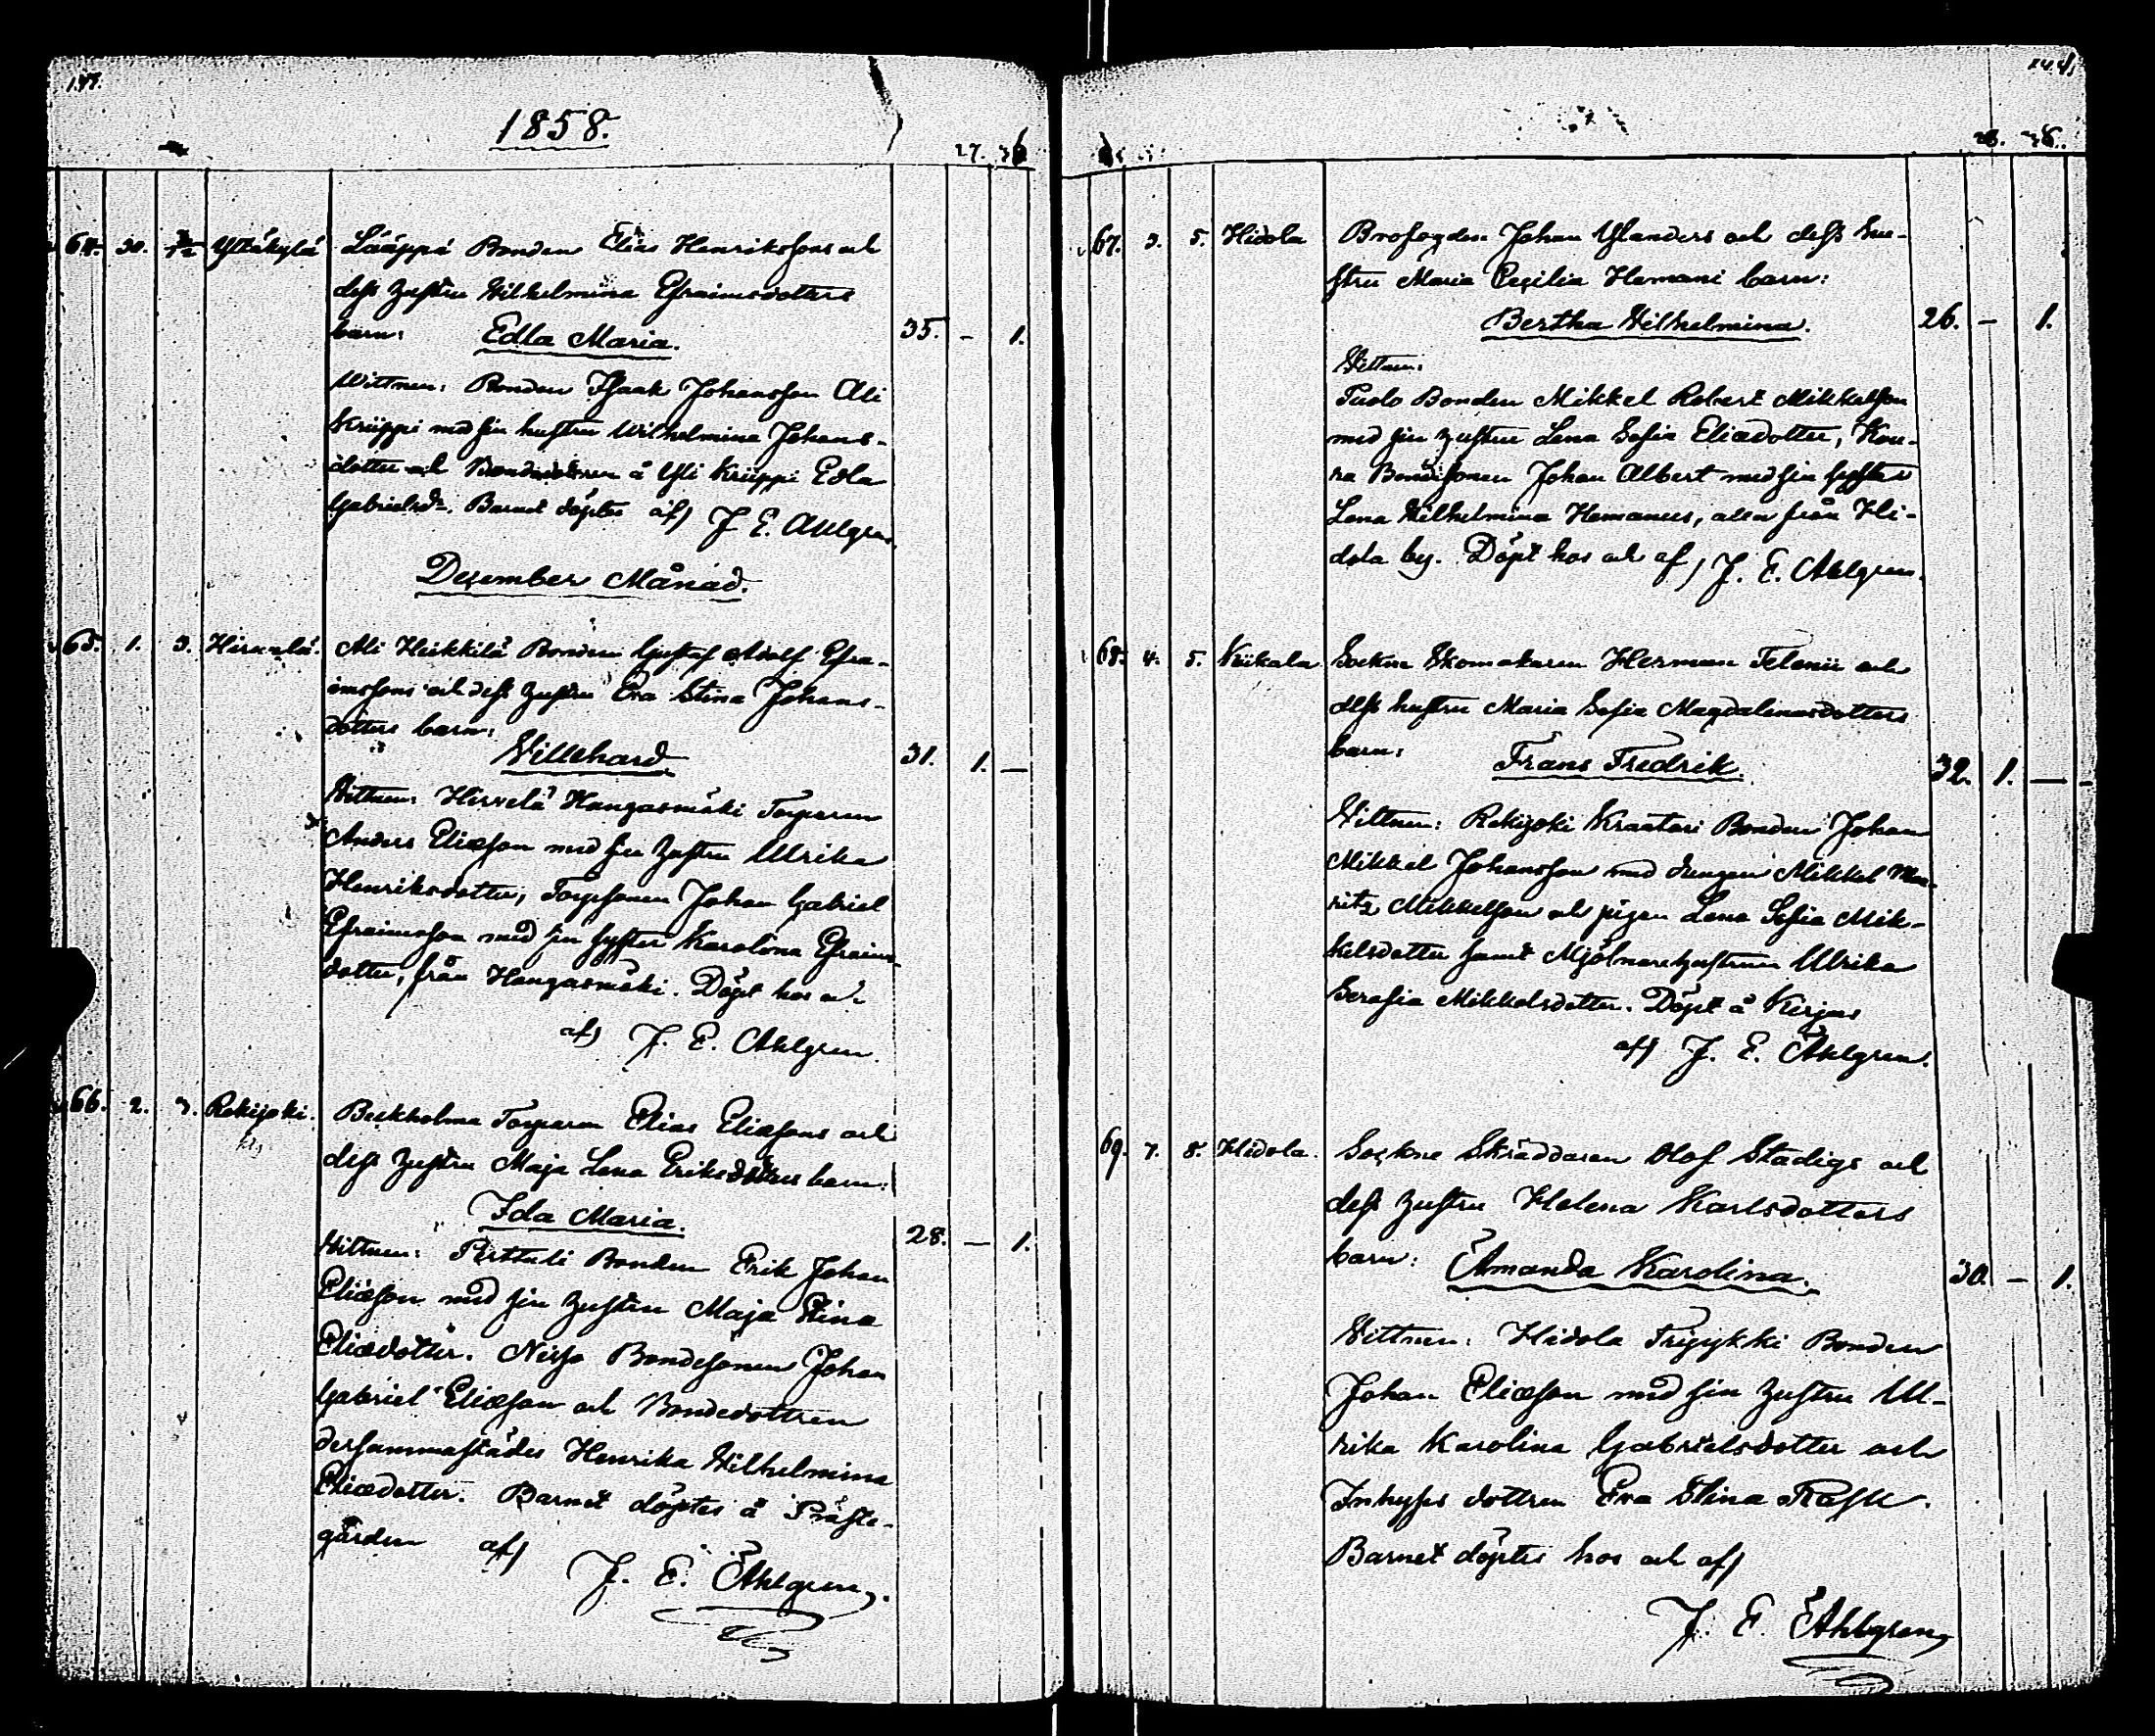 147.
1858.
27. 36
64. 30. 3/12 Yltäkylä Lääppä Bonden Elias Henrikssons och
dess hustru Wilhelmina Efraimsdotters
barn: Edla Maria. 35. – 1.
Wittnen: Bonden Isaak Johansson Ali
Krüppi med sin hustru Wilhelmina Johans-
dotter och Bondedottren å Yli Krüppi Edla
Gabrielsdr. Barnet döptes af J. E. Ahlgren.
Dezember Månad.
65. 1. 3. Hirvelä. Ali Heikkilä Bonden Gustaf Adolf Efra-
imssons och dess hustru Eva Stina Johans-
dotters barn:
Willehard 31. 1. –
Wittnen: Hirvelä Hangasmäki Torparen
Anders Eliæson med sin hustru Ulrika
Henriksdotter, Torpsonen Johan Gabriel
Efraimsson med sin syster Karolina Efraims-
dotter, från Hangasmäki. Döpt hos och
af J. E. Ahlgren.
66. 2. 3. Rekijoki. Beckholma Torparen Elias Eliæsons och
dess hustru Maja Lena Eriksdotters barn:
Ida Maria. 28. – 1.
Wittnen: Perttuli Bonden Erik Johan
Eliæson med sin hustru Maja Stina
Eliædotter. Bondesonen Johan
Gabriel Eliæson och Bondedottren
dersammastädes Henrika Wilhelmina
Eliædotter. Barnet döptes å Präste-
gården af
J. E. Ahlgren.
28. 36.
67. 3. 5. Hidola Brofogden Johan Ylanders och dess hu-
stru Maria Cecilia Hemani barn:
Bertha Wilhelmina. 26. – 1.
Wittnen:
Bonden Mikkel Robert Mikkelson
med sin hustru Lena Sofia Eliædotter, Kou-
ra Bondesonen Johan Albert med sin syster
Lena Wilhelmina Hemanus, alla från Hi-
dola by. Döpt hos och af J. E. Ahlgren.
68. 4. 5. Kiikala Sockne Skomakaren Herman Telenii och
dess hustru Maria Sofia Magdalenasdotters
barn: Frans Fredrik. 32. 1. –
Wittnen: Rekijoki Kraatari Bonden Johan
Mikkel Johansson med drengen Mikkel Mau-
ritz Mikkelson och pigan Lena Sofia Mik-
kelsdotter samt Mjölnarehustrun Ulrika
Serafia Mikkelsdotter. Döpt å
af J. E. Ahlgren.
69. 7. 8. Hidola. Sockne Skräddaren Olof Stadigs och
dess hustru Helena Karlsdotters
barn: Amanda Karolina. 30. – 1.
Wittnen: Hidola Bonden
Johan Eliæson med sin hustru Ul-
rika Karolina Gabrielsdotter och
Inhyses dottren Eva Stina Rask.
Barnet döptes hos och af
J. E. Ahlgren